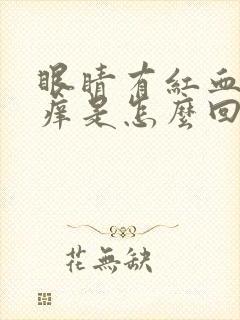 眼睛有紅血
痒是怎麼回
花無缺